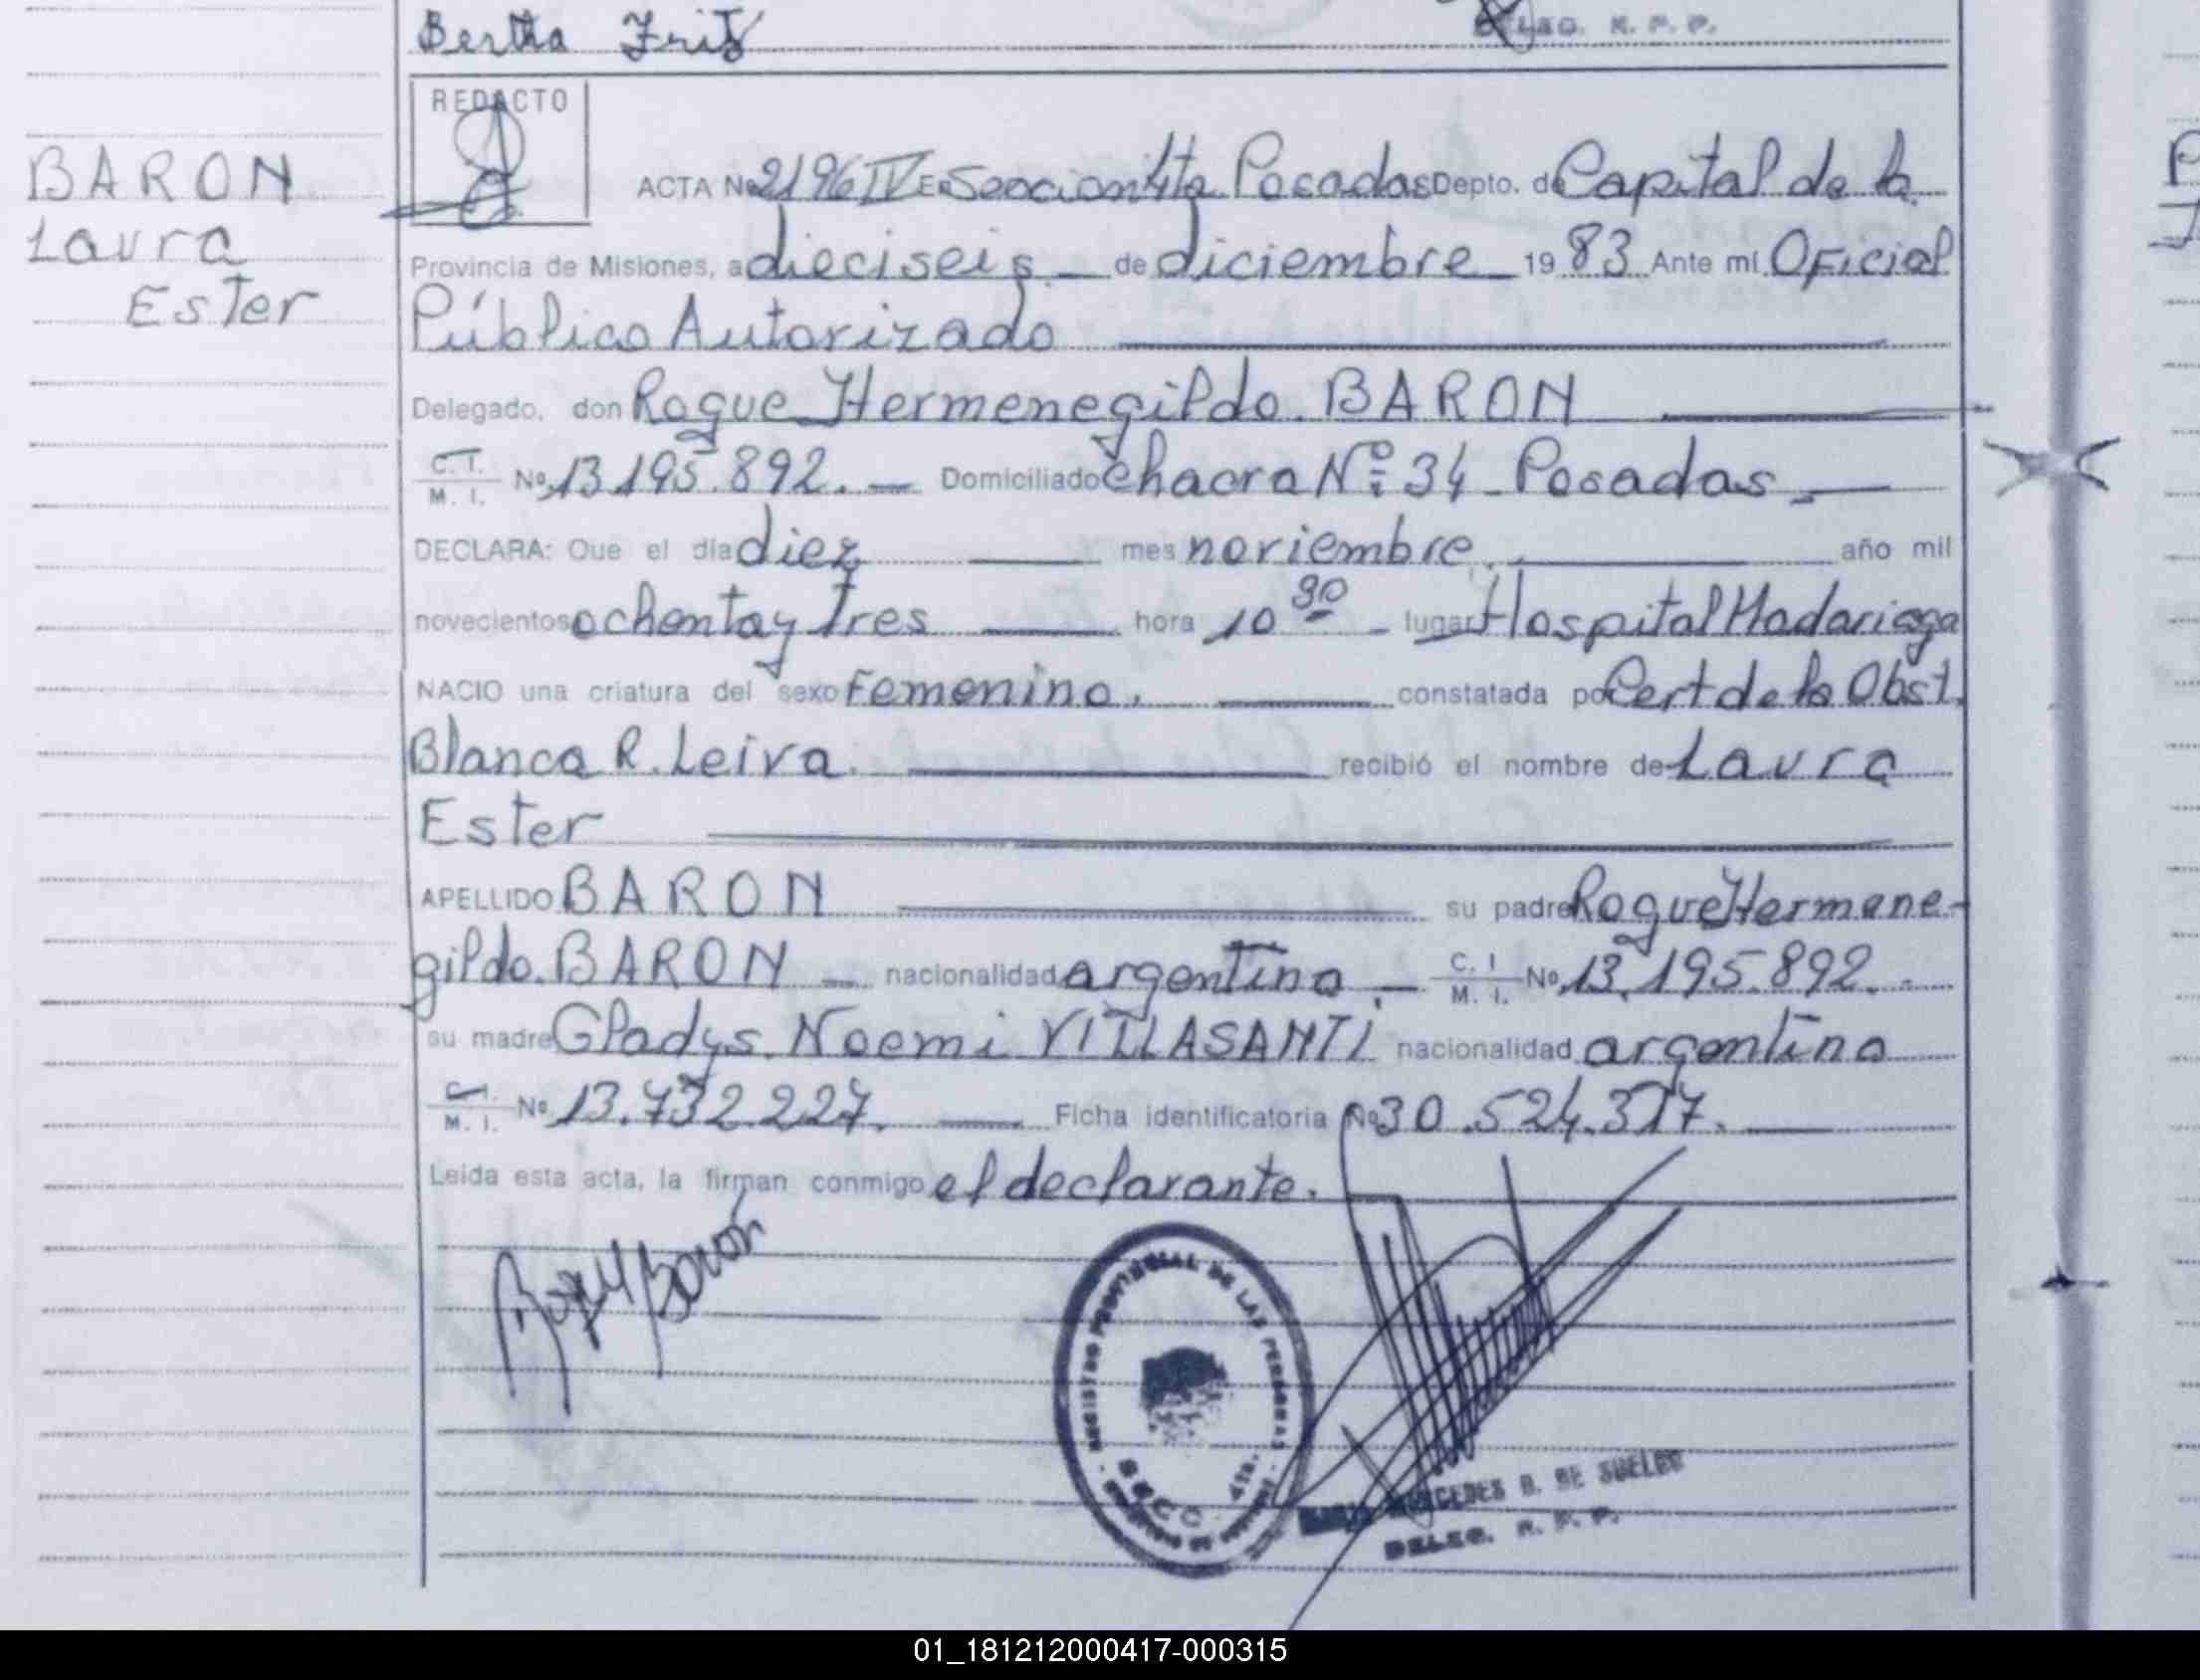 Bertha Fritz
DELEG. R. P. P.
REDACTO
BARON
Laura
Ester
ACTA No 2196 IV En Seccion 4ta Posadas Depto. de Capital de la
Provincia de Misiones, a dieciseis de diciembre 19 83 Ante mi Oficial
Público Autorizado
Delegado, don Roque Hermenegildo BARON
C. I. M. I. No 13.195.892. Domiciliado Chacra Nº 34 - Posadas.
DECLARA: Que el día diez mes noviembre año mil
novecientos ochenta y tres hora 10 30 lugar Hospital Madariaga
NACIO una criatura del sexo Femenino. constatada por Cert de la Obst.
Blanca R. Leiva. recibió el nombre de Laura
Ester
APELLIDO BARON su padre Roque Hermene-
gildo BARON nacionalidad argentina C. I M. I. No 13.195.892.
su madre Gladys Noemi VILLASANTI nacionalidad argentina
C. I. M. I. No 13.732.227. Ficha identificatoria No 30.524.317.
Leída esta acta, la firman conmigo el declarante.
Roque H Barón
REGISTRO PROVINCIAL DE LAS PERSONAS
SECC. 4ta.
MERCEDES B. DE SUELDO
DELEG. R. P. P.
01_181212000417-000315